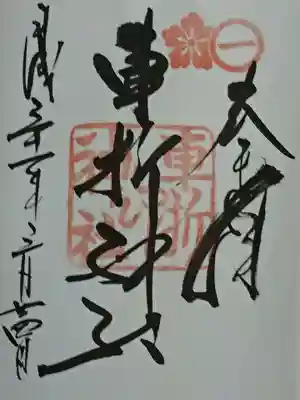 奉拝
車折神社
平成三十一年三月十四日
車折神社